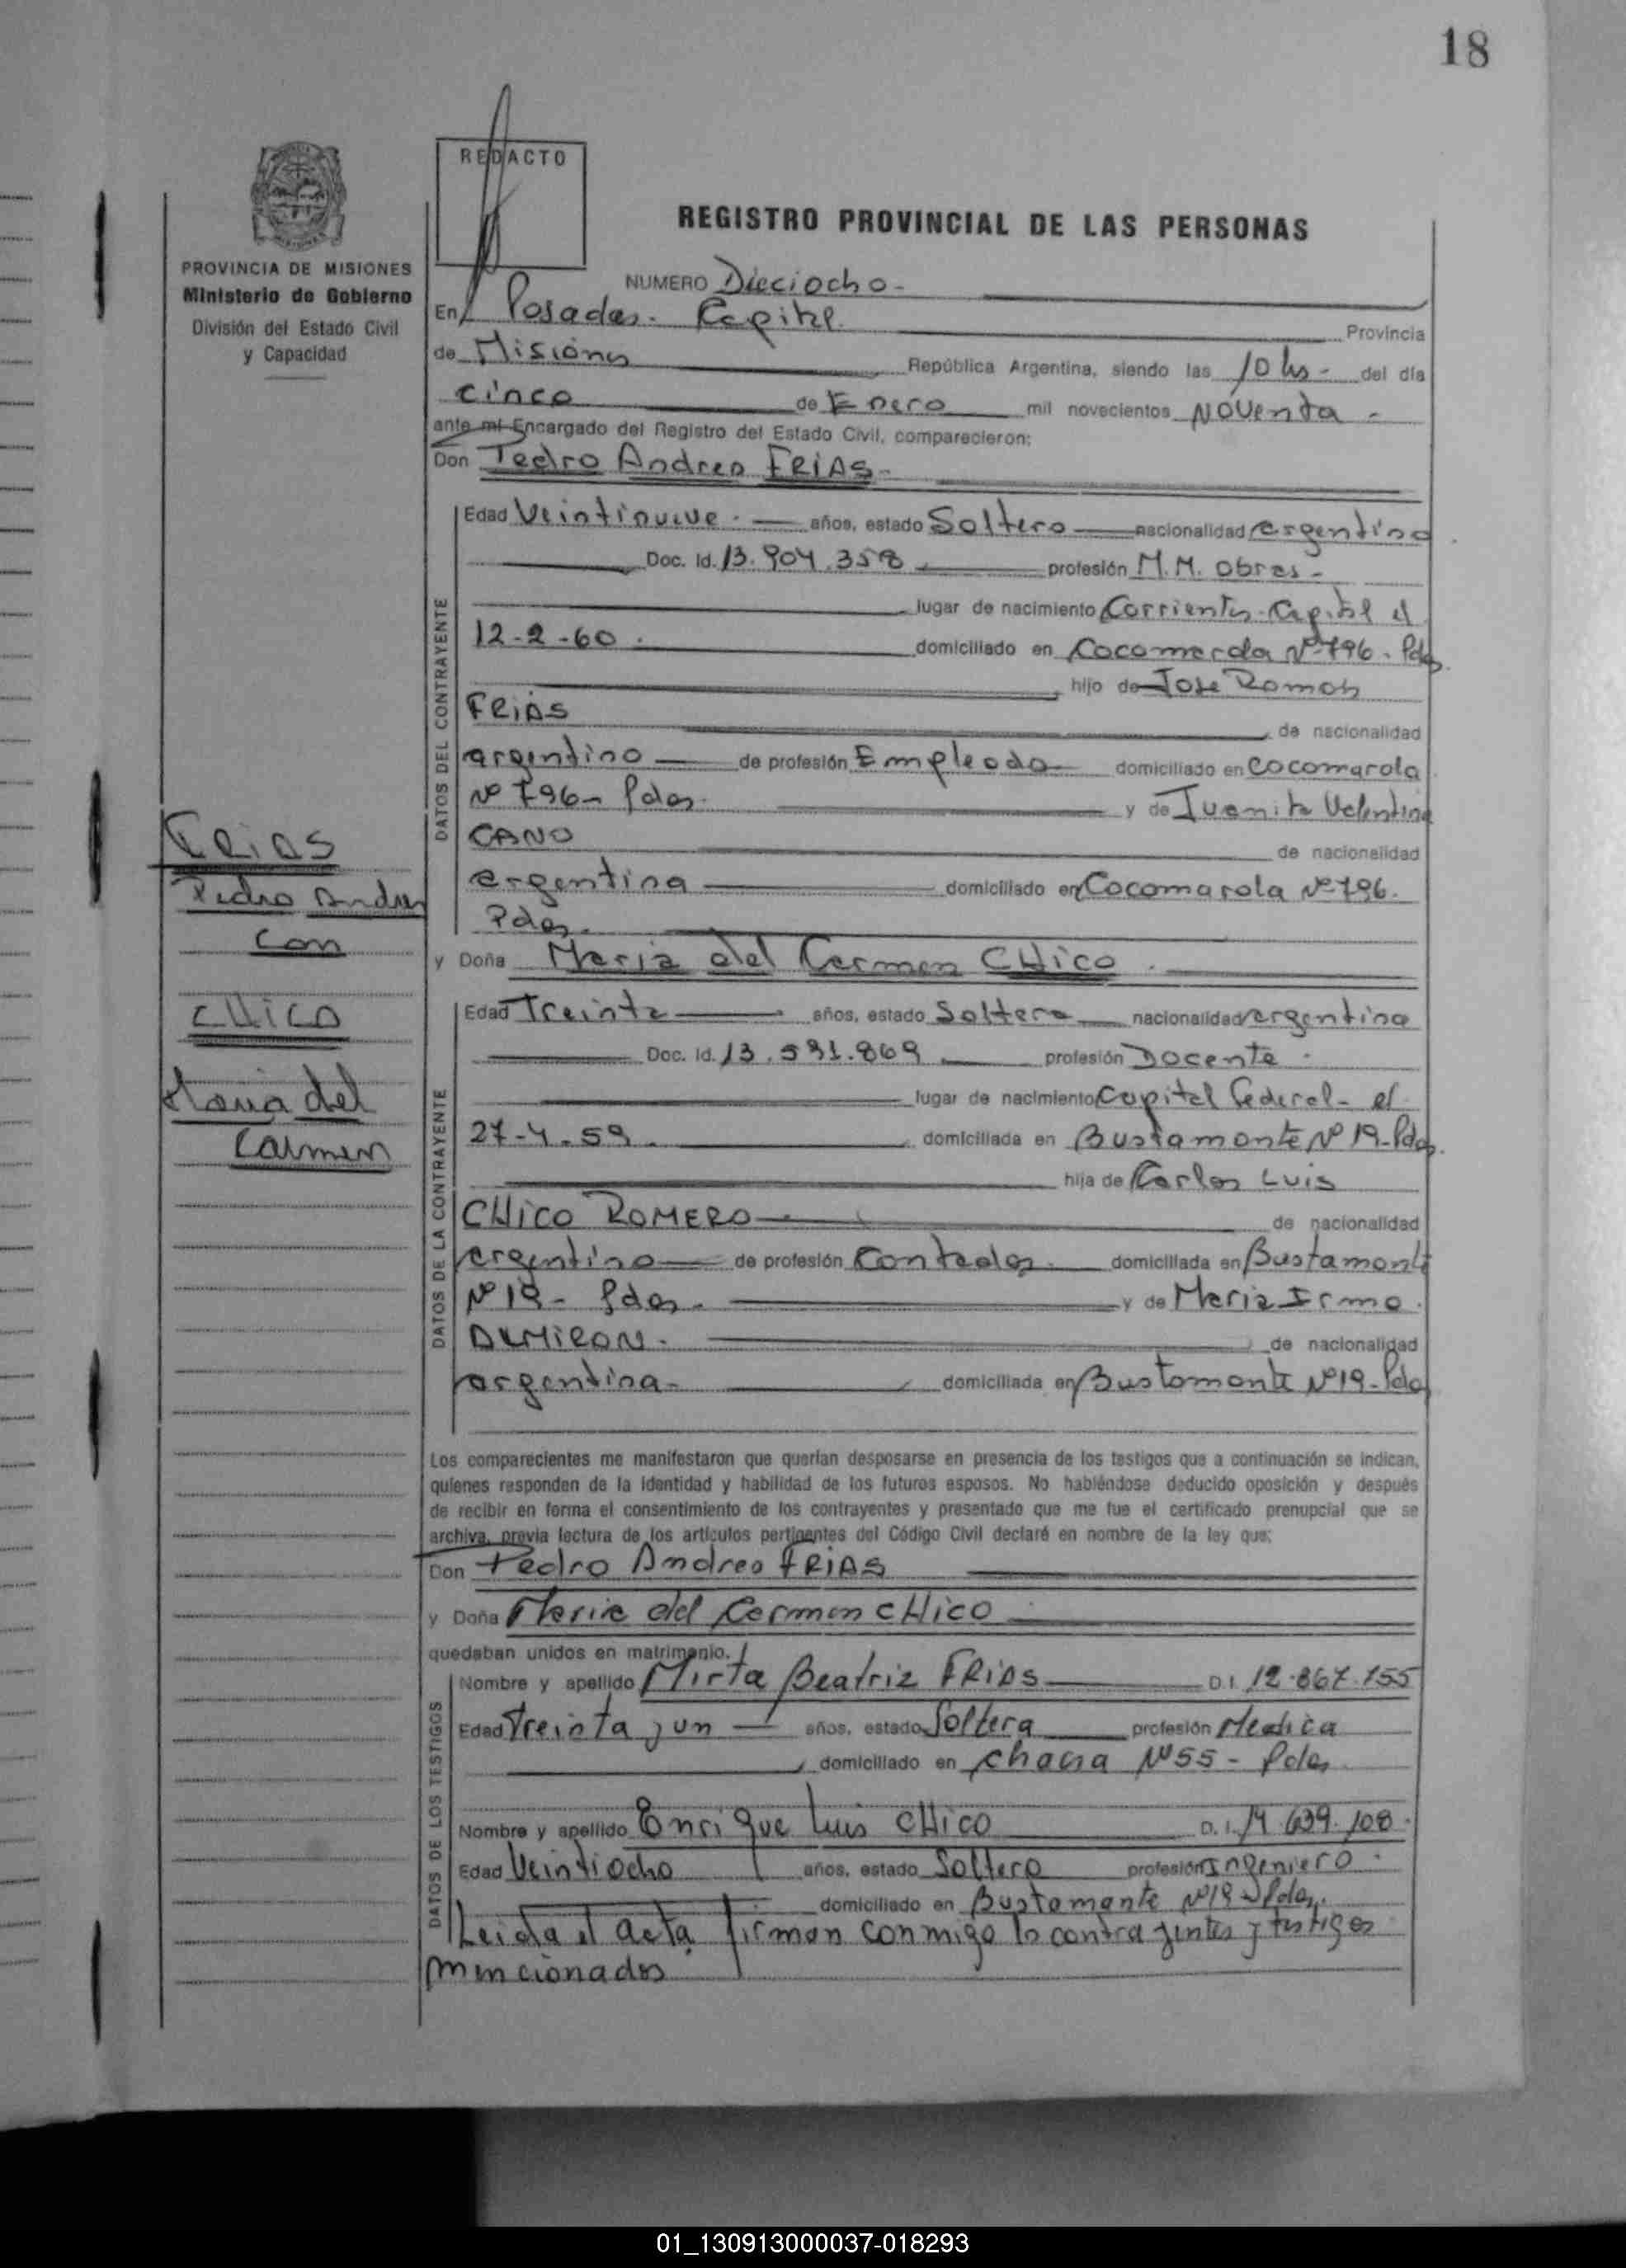 18
REDACTO
REGISTRO PROVINCIAL DE LAS PERSONAS
PROVINCIA DE MISIONES
Ministerio de Gobierno
División del Estado Civil
y Capacidad
NUMERO Dieciocho-
En Posadas- Capital. Provincia
de Misiones República Argentina, siendo las 10 hs- del día
cinco de Enero mil novecientos Noventa -
ante mí Encargado del Registro del Estado Civil, comparecieron:
Don Pedro Andres FRIAS-
DATOS DEL CONTRAYENTE
Edad Veintinueve- años, estado Soltero nacionalidad argentino
Doc. Id. 13.904.358 profesión M.M. Obras-
lugar de nacimiento Corrientes-Capital el
12-2-60. domiciliado en Cocomarola Nº 796- Pdas.
hijo de Jose Ramon
FRIAS de nacionalidad
argentino de profesión Empleado domiciliado en Cocomarola
Nº 796- Pdas. y de Juanita Valentina
CANO de nacionalidad
argentina domiciliado en Cocomarola Nº 796.
Pdas.
FRIAS
Pedro Andres
con
CHICO
Maria del
Carmen
y Doña Maria del Carmen CHICO.
DATOS DE LA CONTRAYENTE
Edad Treinta años, estado Soltera nacionalidad argentina
Doc. Id. 13.531.869 profesión Docente.
lugar de nacimiento Capital Federal- el
27-4-59. domiciliada en Bustamante Nº 19-Pdas.
hija de Carlos Luis
CHICO ROMERO de nacionalidad
argentino de profesión Contador domiciliada en Bustamante
Nº 19- Pdas. y de Maria Irma.
de nacionalidad
argentina- domiciliada en Bustamante Nº 19-Pdas
Los comparecientes me manifestaron que querían desposarse en presencia de los testigos que a continuación se indican,
quienes responden de la identidad y habilidad de los futuros esposos. No habiéndose deducido oposición y después
de recibir en forma el consentimiento de los contrayentes y presentado que me fue el certificado prenupcial que se
archiva, previa lectura de los artículos pertinentes del Código Civil declaré en nombre de la ley que:
Don Pedro Andres FRIAS
y Doña Maria del Carmen CHICO
quedaban unidos en matrimonio.
DATOS DE LOS TESTIGOS
Nombre y apellido Mirta Beatriz FRIAS D.I. 12.867.155
Edad Treinta y un años, estado Soltera profesión Medica
domiciliado en chacra Nº 55- Pdas
Nombre y apellido Enrique Luis CHICO D.I. 14.639.108.
Edad Veintiocho años, estado Soltero profesión Ingeniero.
domiciliado en Bustamante Nº 19-Pdas.
Leida el acta firman conmigo los contrayentes y testigos
mencionados
01_130913000037-018293